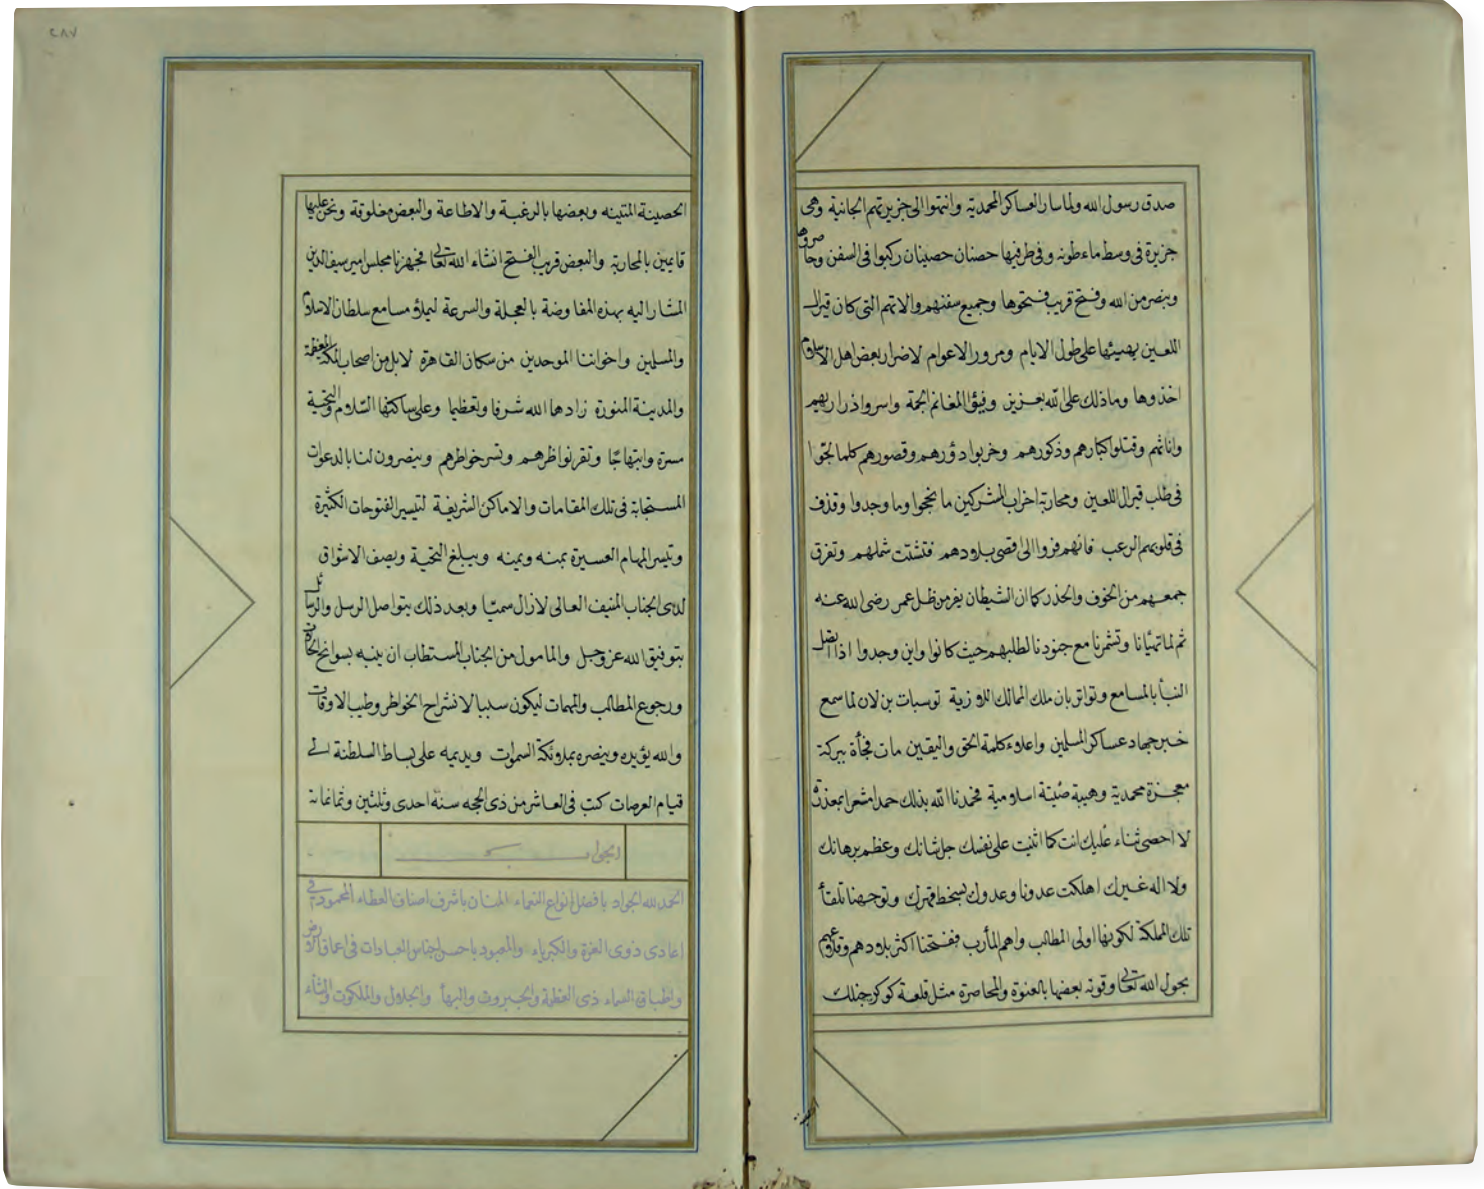 صدق رسول الله ولما سار العساكر المحمدية وانتهوا الى جزيرتهم الجانية وهى
جزيرة فى وسط ماء طونه وفى طرفيها حصنان حصينان ركبوا فى السفن وحاصروها
وبنصر من الله وفتح قريب فتحوها وجميع سفنهم والاتهم التى كان قيرال
اللعين يهيئها على طول الايام ومرور الاعوام لاضرار بعض اهل الاسلام
اخذوها وما ذلك على الله بعزيز وفيؤا المغانم الجمة واسروا ذراريهم
واناثهم وقتلوا كبارهم وذكورهم وخربوا دؤرهم وقصورهم كلما لجوا
فى طلب قيرال اللعين ومحاربة احزاب المشركين ما نجحوا وما وجدوا وقذف
فى قلوبهم الرعب فانهم فروا الى اقصى بلادهم فتشتت شملهم وتفرق
جمعهم من الخوف والحذر كما ان الشيطان يفر من ظل عمر رضى الله عنه
ثم لما تهيأنا وتشمرنا مع جنودنا لطلبهم حيث كانوا واين وجدوا اذا اتصل
النبأ بالمسامع وتواتر بان ملك الممالك اللاوزية توسبات بن لان لما سمع
خبر جهاد عساكر المسلمين واعلاء كلمة الحق واليقين مات فجأة ببركة
معجزة محمدية وهيبة اسلامية فحمدنا الله بذلك حمدا مشعرا بمعذرة
لا احصى ثناء عليك انت كما اثنيت على نفسك جل شانك وعظم برهانك
ولا اله غيرك اهلكت عدونا وعدوك بسخط قهرك وتوجهنا تلقأ
تلك المملكة لكونها اولى المطالب واهم المأرب ففتحنا اكثر بلادهم وقلاعهم
بحول الله تعالى وقوته بعضها بالعنوة والمحاصرة مثل قلعة كوكرجنلك
الحصينة المتينه وبعضها بالرغبة والاطاعة والبعض مغلوقة ونحن عليها
قايمين بالمحاربة والبعض قريب الفتح انشاء الله تعالى فجهزنا مجلس امير سيف الدين
المشار اليه بهذه المفاوضة بالعجلة والسرعة ليملؤ مسامع سلطان الاسلام
والمسلمين واخواننا الموحدين من سكان القاهرة لابل من اصحاب المكة المعظمة
والمدينة المنورة زادها الله شرفا وتعظيما وعلى ساكنها السلام والتحية
مسرة وابتهاجا وتقر نواظرهم وتسر خواطرهم وينصرون لنا بالدعوات
المستجابة فى تلك المقامات والاماكن الشريفة لتيسير الفتوحات الكثيرة
وتيسر المهام العسيرة بمنه ويمنه ويبلغ التحية ويصف الاشواق
لدى الجناب المنيف العالى لازال سميا وبعد ذلك يتواصل الرسل والرسائل
بتوفيق الله عز وجل والمامول من الجناب المستطاب ان ينبه بسوانح الحاجات
ورجوع المطالب والمهمات ليكون سببا لانشراح الخواطر وطيب الاوقات
والله يؤيده وينصره بملائكة السموات ويديمه على بساط السلطنة الى
قيام العرصات كتب فى العاشر من ذى الحجه سنة احدى وثلثين وثمانمائة
الجواب
الحمد لله الجواد بافضل انواع النعماء المنان باشرف اصناف العطاء المحمود فى
اعادى ذوى العزة والكبرياء والمعبود باحسن اجناس العبادات فى اعماق الارض
واطباق السماء ذى العظمة والجبروت والبهأ والجلال والملكوت والثناء
٢٨٧